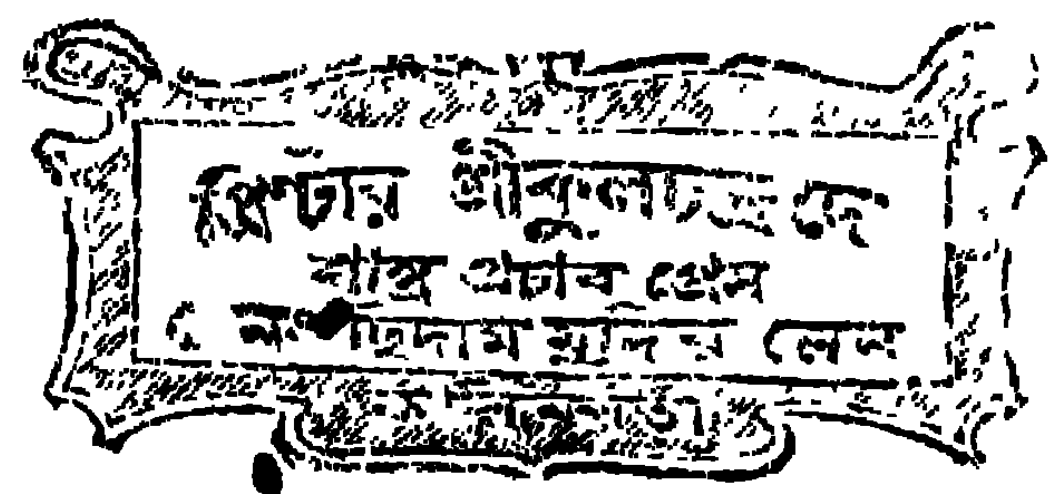 প্রিণ্টার শ্রীকুলচন্দ্র দে
শাস্ত্র প্রচার প্রেস
৫ ছিদাম মুদির লেন
কলিকাতা